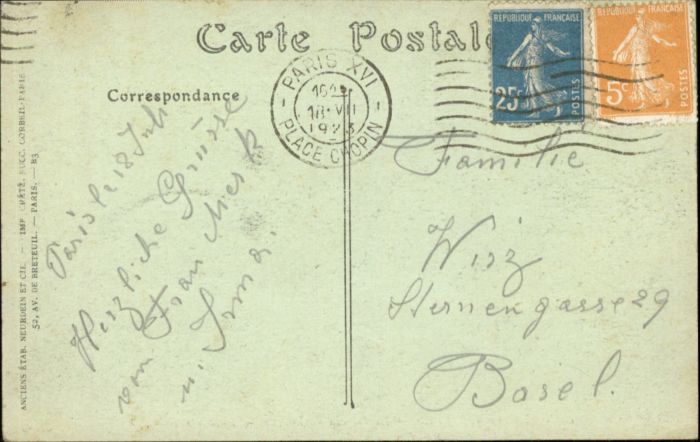 Carte Postale
Correspondance
Paris le 18 Juli
Herzliche Grüsse
von Frau
u. Irma.
Familie
Wirz
Sternengasse 29
Basel.
PARIS XVI
18 VII
1923
PLACE CHOPIN
REPUBLIQUE FRANÇAISE
25c
POSTES
REPUBLIQUE FRANÇAISE
5c
POSTES
ANCIENS ÉTAB. NEURDEIN ET CIE. — IMP. CRÉTÉ, SUCC. CORBEIL-PARIS
52, AV. DE BRETEUIL. — PARIS. — B3